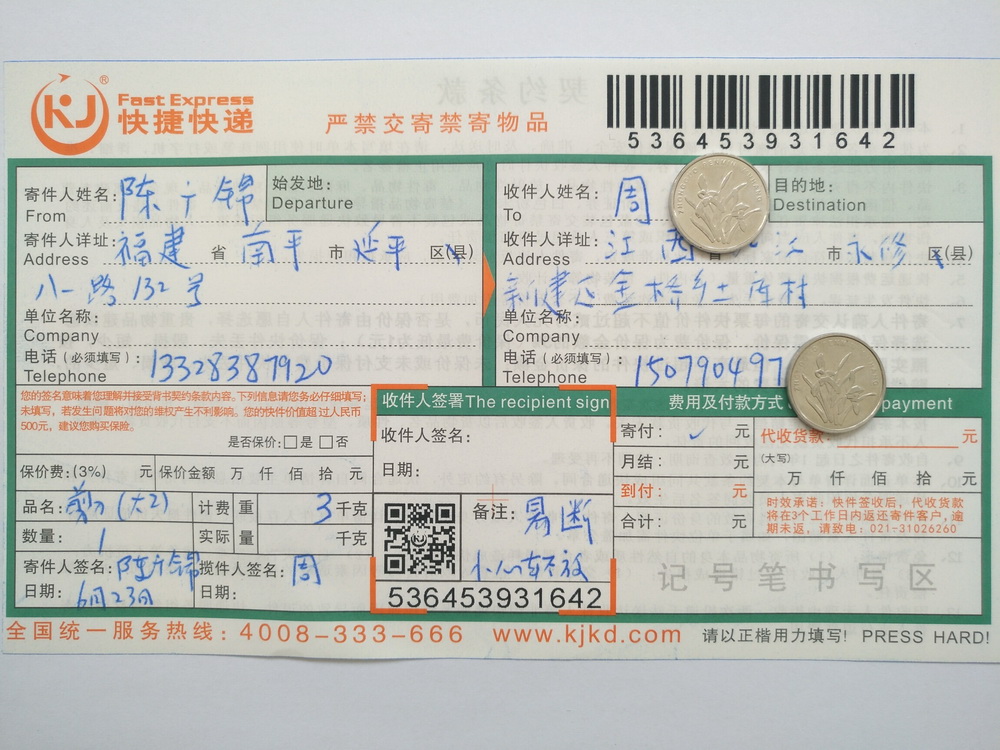 KJ
®
Fast Express
快捷快递
严禁交寄禁寄物品
536453931642
寄件人姓名: 陈广锦
From
始发地:
Departure
寄件人详址: 福建 省 南平 市 延平 区(县)
Address
八一路132号
单位名称:
Company
电话(必须填写): 13328387920
Telephone
收件人姓名: 周
To
目的地:
Destination
收件人详址: 江西 省 江 市 永修 区(县)
Address
新建区金桥乡上库村
单位名称:
Company
电话(必须填写): 1507904097
Telephone
您的签名意味着您理解并接受背书契约条款内容。下列信息请您务必仔细填写;
未填写,若发生问题将对您的维权产生不利影响。您的快件价值超过人民币
500元,建议您购买保险。
是否保价: 是 否
保价费:(3%) 元 保价金额 万 仟 佰 拾 元
品名: 剪刀(大2) 计费 重 3千克
数量: 1 实际 量 千克
寄件人签名: 陈广锦 揽件人签名: 周
日期: 6月23日 日期:
收件人签署The recipient sign
收件人签名:
日期:
备注: 易断
小心轻放
536453931642
费用及付款方式 payment
寄付: ✓ 元
月结: 元
到付: 元
合计: 元
代收货款: 元
(大写)
万 仟 佰 拾 元
时效承诺:快件签收后,代收货款
将在3个工作日内返还寄件客户,逾
期未返,请致电:021-31026260
记号笔书写区
全国统一服务热线:4008-333-666 www.kjkd.com 请以正楷用力填写! PRESS HARD!